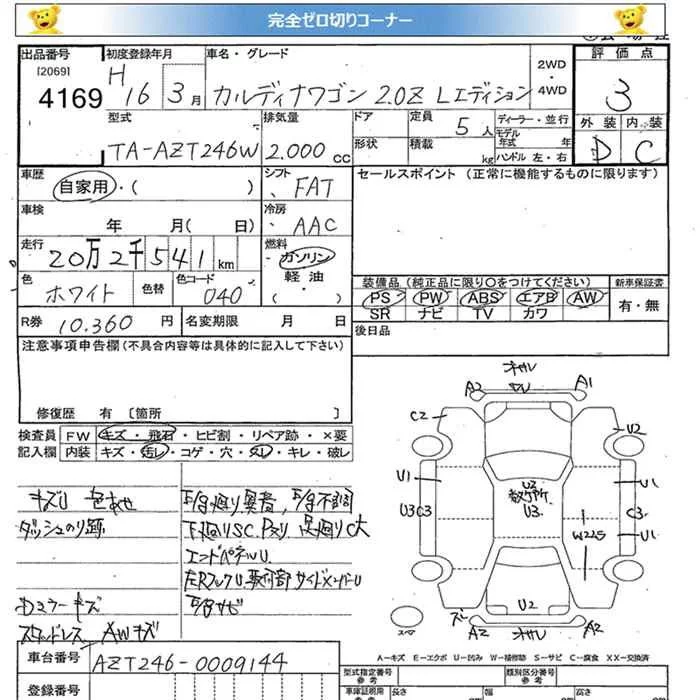 完全ゼロ切りコーナー
出品番号 初度登録年月 車名・グレード 2WD・4WD 評価点
[2069]
4169 H 16 3月 カルディナワゴン 2.0Z Lエディション 3
型式 排気量 ドア 定員 5人 ディーラー・並行 外装 内装
TA-AZT246W 2.000 CC 形状 積載 kg モデル年式 年 ハンドル 左・右 D C
車歴 シフト セールスポイント (正常に機能するものに限ります)
自家用・( ) FAT
車検 冷房
年 月( 日) AAC
走行 燃料
20万2千541km ガソリン
色 色替 色コード 軽油 装備品 (純正品に限り○をつけてください) 新車保証書
ホワイト 040 ( ) PS PW ABS エアB AW 有・無
SR ナビ TV カワ
R券 10.360円 名変期限 月 日 後日品
注意事項申告欄 (不具合内容等は具体的に記入して下さい)
修復歴 有 [箇所 ]
検査員 FW キズ・飛石・ヒビ割・リペア跡・×要
記入欄 内装 キズ・汚レ・コゲ・穴・スレ・キレ・破レ
A2 A1
C2 U2
U1 U1
U3C3 U3 C3
U1
W225
U2
A2 A2
キズU 色あせ
ダッシュのり跡
下廻りSC
エンドパネルU
Dミラーキズ
スタッドレス AWキズ
スペア
A−キズ E−エクボ U−凹み W−補修跡 S−サビ C−腐食 XX−交換済
車台番号 AZT246-0009144
型式指定番号 参考 類別区分番号 参考
登録番号 長さ 幅 高さ